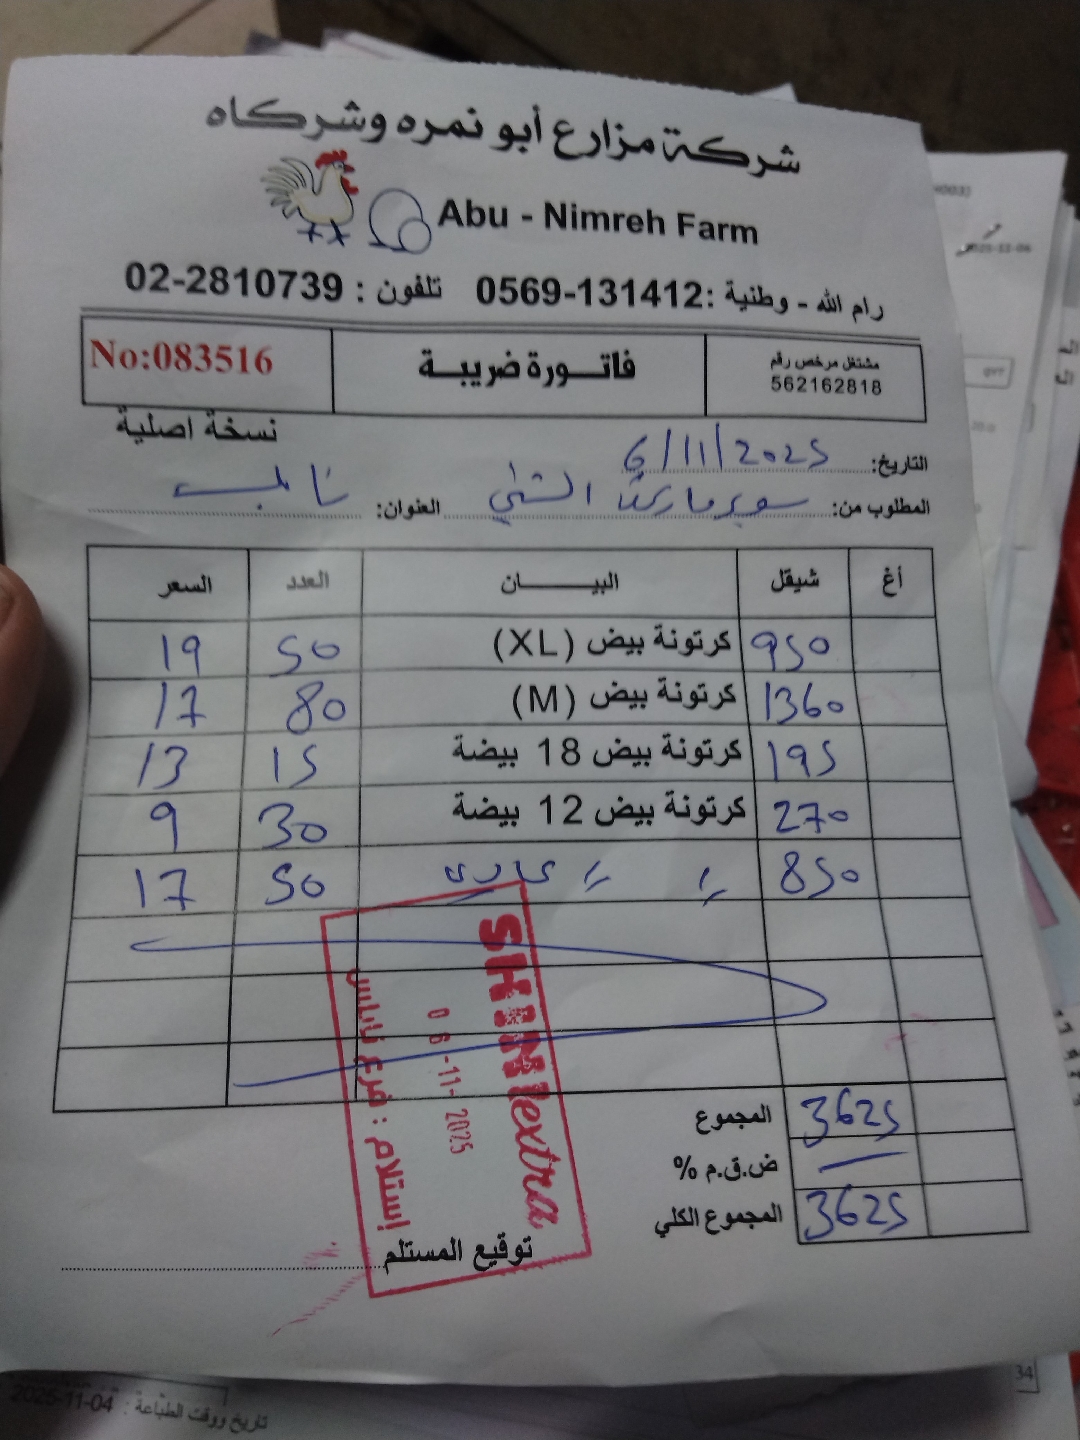 شركة مزارع أبو نمره وشركاه
Abu - Nimreh Farm
رام الله - وطنية :0569-131412 تلفون : 02-2810739
مشتغل مرخص رقم
562162818
فاتورة ضريبة
No:083516
نسخة اصلية
التاريخ: 6/11/2025
المطلوب من: سوبرماركت الشني العنوان: نابلس
أغ شيقل البيان العدد السعر
950 كرتونة بيض (XL) 50 19
1360 كرتونة بيض (M) 80 17
195 كرتونة بيض 18 بيضة 15 13
270 كرتونة بيض 12 بيضة 30 9
850 " " عادي 50 17
SHINI extra
06-11-2025
إستلام : فرع نابلس
المجموع 3625
ض.ق.م %
المجموع الكلي 3625
توقيع المستلم
تاريخ ووقت الطباعة : 2025-11-04
34